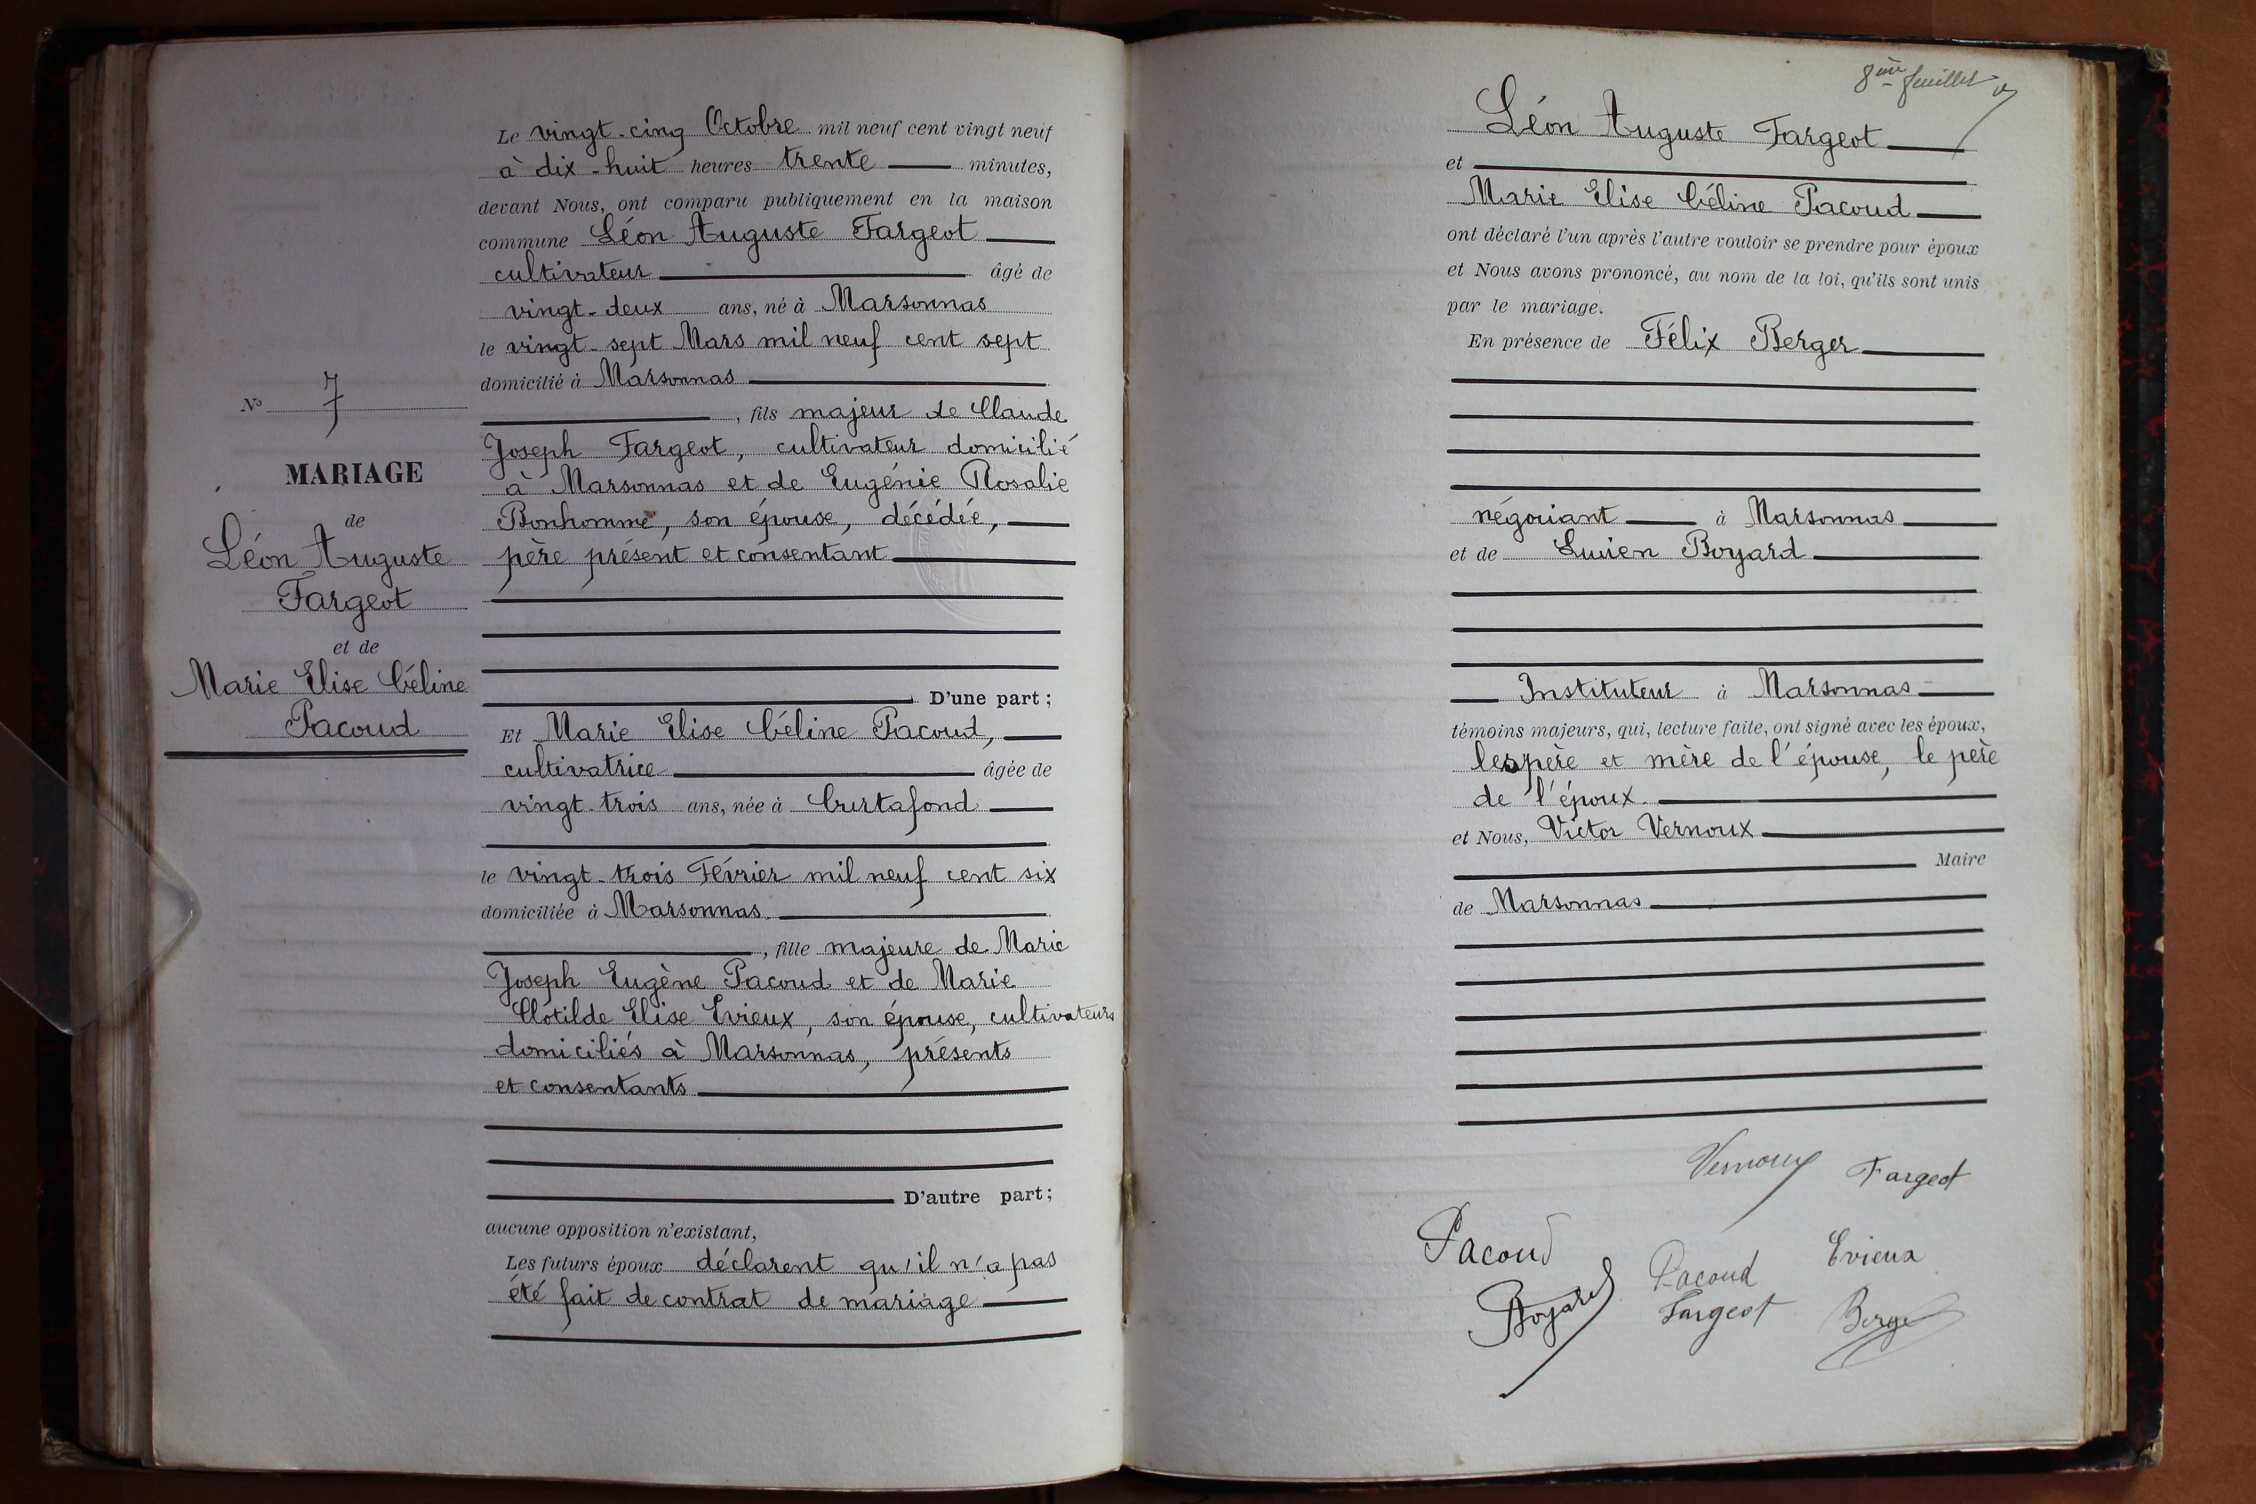 N° 7
MARIAGE
de
Léon Auguste
Fargeot
et de
Marie Elise Céline
Pacoud
Le vingt-cinq Octobre mil neuf cent vingt neuf
à dix-huit heures trente minutes,
devant Nous, ont comparu publiquement en la maison
commune Léon Auguste Fargeot
cultivateur âgé de
vingt-deux ans, né à Marsonnas
le vingt-sept Mars mil neuf cent sept
domicilié à Marsonnas
, fils majeur de Claude
Joseph Fargeot, cultivateur domicilié
à Marsonnas et de Eugénie Rosalie
Bonhomme, son épouse, décédée,
père présent et consentant
D'une part;
Et Marie Elise Céline Pacoud,
cultivatrice âgée de
vingt-trois ans, née à Curtafond
le vingt-trois Février mil neuf cent six
domiciliée à Marsonnas
, fille majeure de Marie
Joseph Eugène Pacoud et de Marie
Clotilde Elise Evieux, son épouse, cultivateurs
domiciliés à Marsonnas, présents
et consentants
D'autre part;
aucune opposition n'existant,
Les futurs époux déclarent qu'il n'a pas
été fait de contrat de mariage
8ème feuillet
Léon Auguste Fargeot
et
Marie Elise Céline Pacoud
ont déclaré l'un après l'autre vouloir se prendre pour époux
et Nous avons prononcé, au nom de la loi, qu'ils sont unis
par le mariage.
En présence de Félix Berger
négociant à Marsonnas
et de Lucien Boyard
Instituteur à Marsonnas
témoins majeurs, qui, lecture faite, ont signé avec les époux,
les père et mère de l'épouse, le père
de l'époux.
et Nous, Victor Vernoux
Maire
de Marsonnas
Vernoux Fargeot
Pacoud Pacoud Evieux
Boyard Fargeot Berger